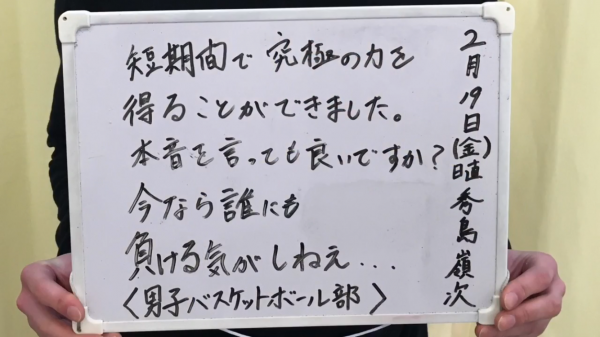 短期間で究極の力を
得ることができました。
本音を言っても良いですか?
今なら誰にも
負ける気がしねえ...
〈男子バスケットボール部〉
2月19日(金)日直 秀島嶺次